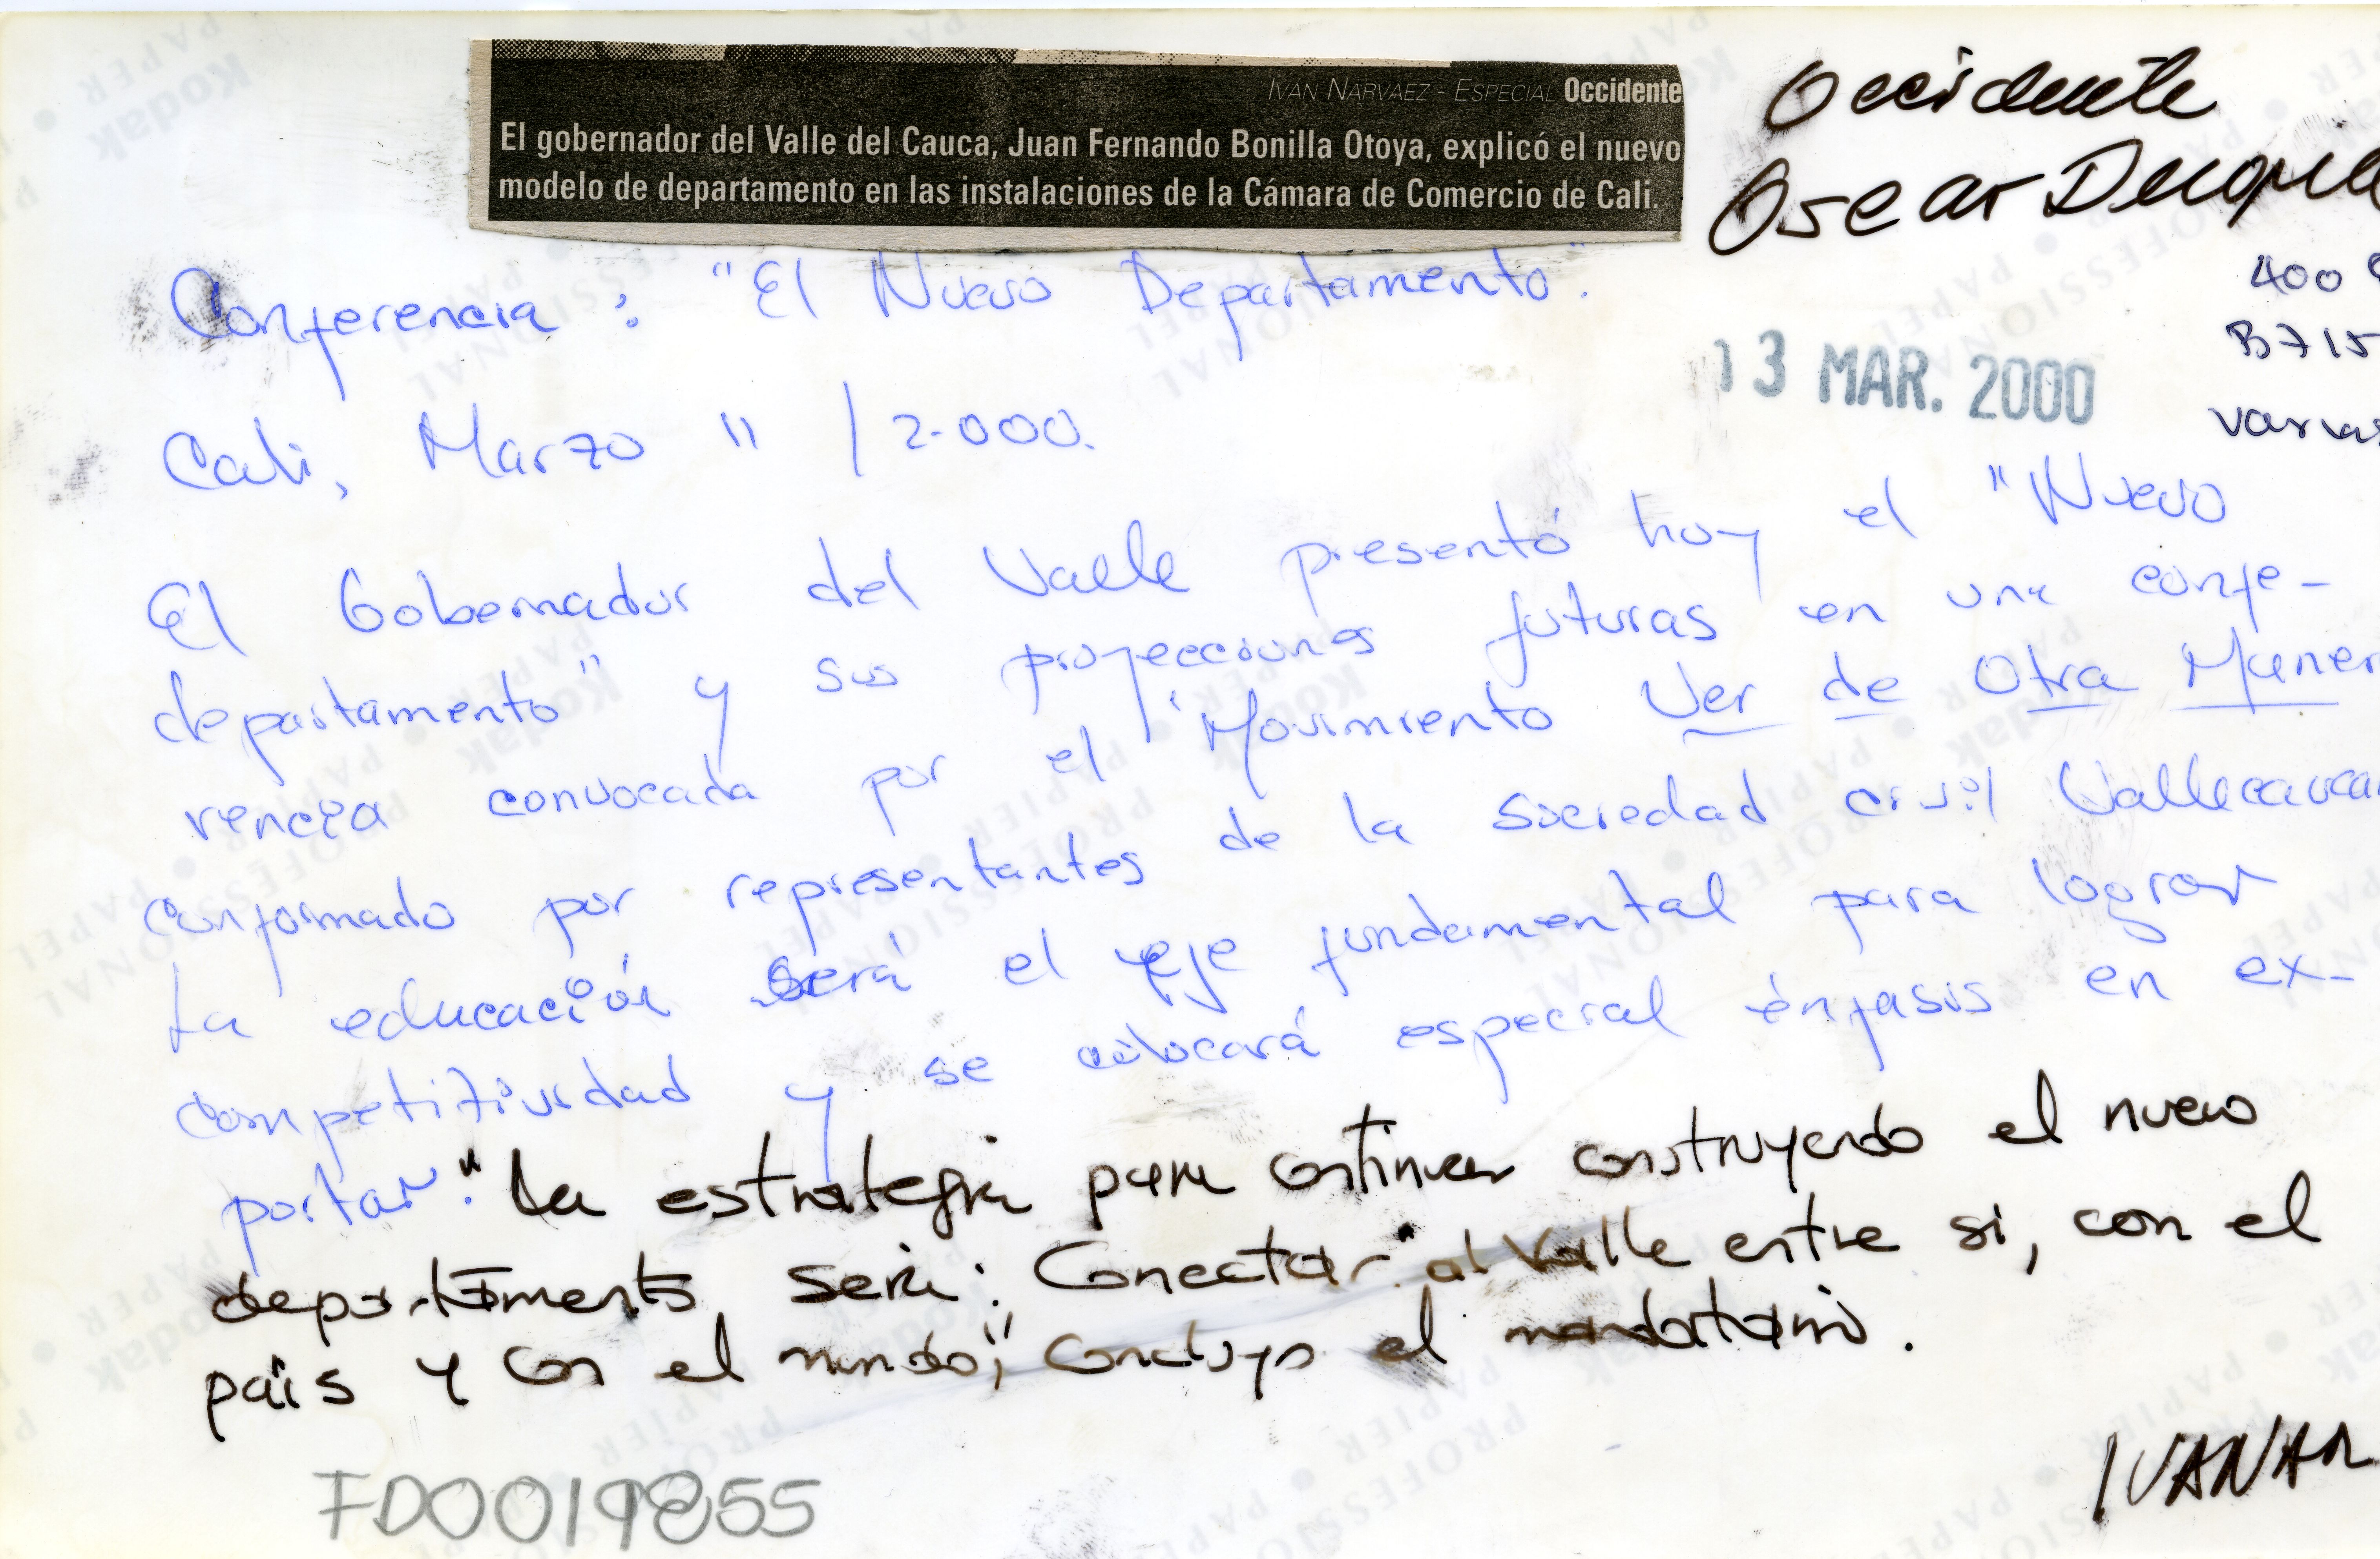 IVAN NARVAEZ - ESPECIAL Occidente
El gobernador del Valle del Cauca, Juan Fernando Bonilla Otoya, explicó el nuevo
modelo de departamento en las instalaciones de la Cámara de Comercio de Cali.
Occidente
Oscar
400
B715
13 MAR. 2000
varias
Conferencia : "El Nuevo Departamento".
Cali, Marzo 11 / 2.000.
El Gobernador del Valle presentó hoy el "Nuevo
departamento" y sus proyecciones futuras en una confe-
rencia convocada por el "Movimiento Ver de Otra Maner
conformado por representantes de la sociedad civil Vallecauca
La educación será el eje fundamental para lograr
competitividad y se colocará especial énfasis en ex-
portar. "La estrategia para continuar construyendo el nuevo
departamento será: Conectar al Valle entre si, con el
país y con el mundo", concluyo el mandatario.
IVANAR
FD0019855
Kodak
PROFESSIONAL
PAPER
PAPIER
PAPEL